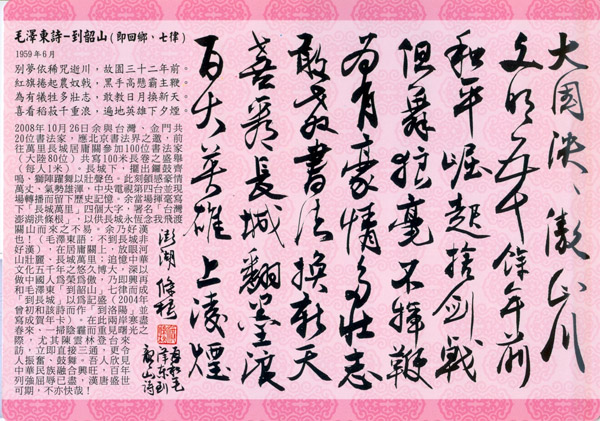 毛澤東詩–到韶山(即回鄉、七律)
1959年6月
別夢依稀咒逝川，故園三十二年前。
紅旗捲起農奴戟，黑手高懸霸主鞭。
為有犧牲多壯志，敢教日月換新天。
喜看稻菽千重浪，遍地英雄下夕煙。
2008年10月26日余與台灣、金門共
20位書法家，應北京書法界之邀，前
往萬里長城居庸關參加100位書法家
(大陸80位)共寫100米長卷之盛舉
(每人1米)。長城下，擺出鑼鼓齊
鳴，獅陣躍舞以壯聲色。此刻頗感豪情
萬丈，氣勢雄渾，中央電視第四台並現
場轉播而留下歷史記憶。余當場揮毫寫
下「長城萬里」四個大字，署名「台灣
澎湖洪條根」，以供長城永恆念我飛渡
關山而來之不易。余乃好漢
也！(毛澤東語：不到長城非
好漢)，在居庸關上，放眼河
山壯麗，長城萬里；追憶中華
文化五千年之悠久博大，深以
做中國人為榮為傲，乃即興再
和毛澤東「到韶山」七律而成
「到長城」以為記盛(2004年
曾初和該詩而作「到洛陽」並
寫成賀年卡)。在此兩岸寒盡
春來、一掃陰霾而重見曙光之
際，尤其陳雲林登台來
訪，立即直接三通，更令
人振奮、鼓舞。吾人欣見
中華民族融合興旺，百年
列強屈辱已盡，漢唐盛世
可期，不亦快哉！
大國泱、傲山川
文明五千餘年前
和平崛起捨劍戟
但舞狼毫不揮鞭
為有豪情多壯志
敢教書法換新天
喜看長城翻墨浪
百大英雄上凌煙
澎湖 條根
和毛
澤東到
韶山詩